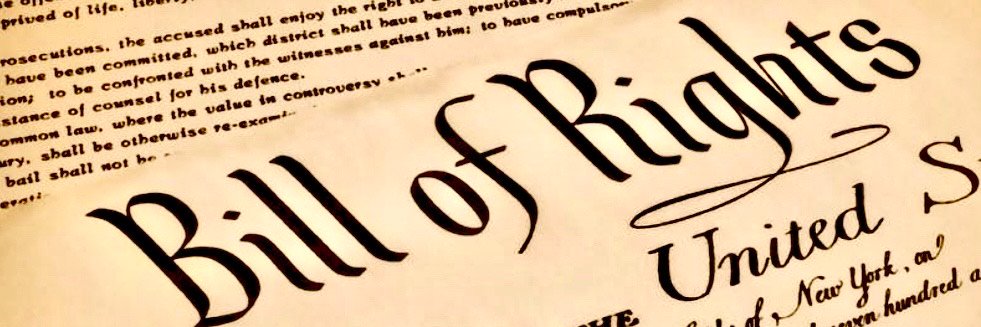 prived of life, liberty,
rosecutions, the accused shall enjoy the right to
have been committed, which district shall have been previously
ion; to be confronted with the witnesses against him; to have compulsor
stance of counsel for his defence.
ommon law, where the value in controversy sh
ury, shall be otherwise re-exami
bail shall not be
Bill of Rights
United S
THE
of New York, on
even hundred a